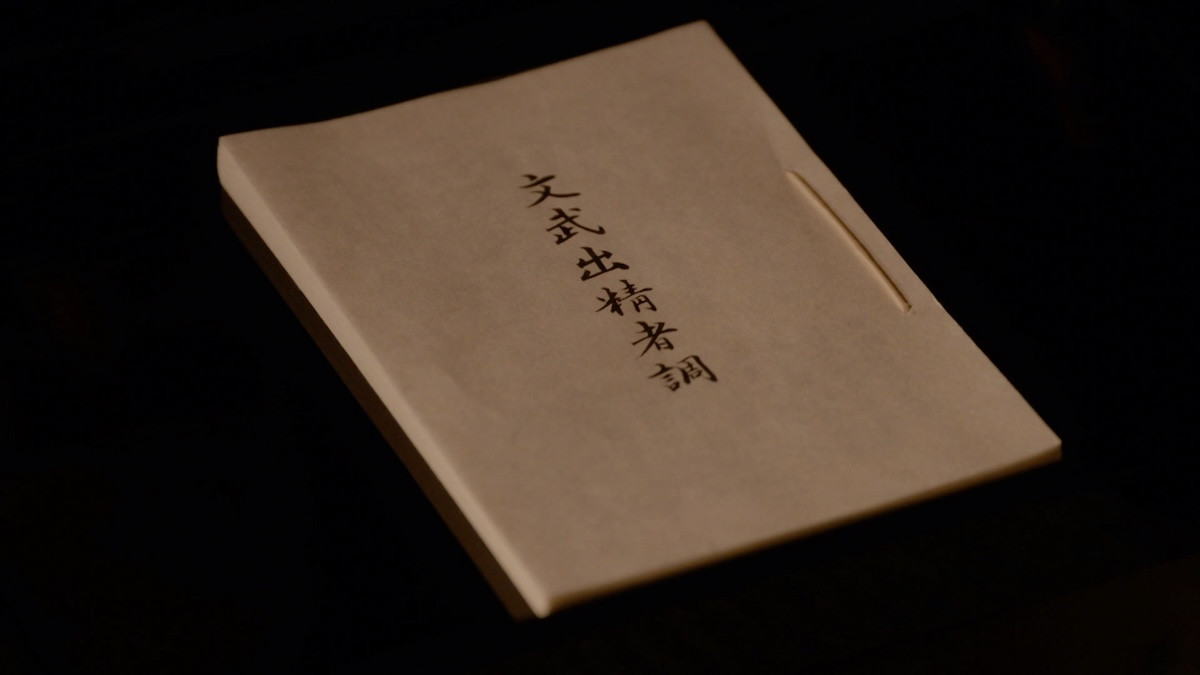 文武出精者調